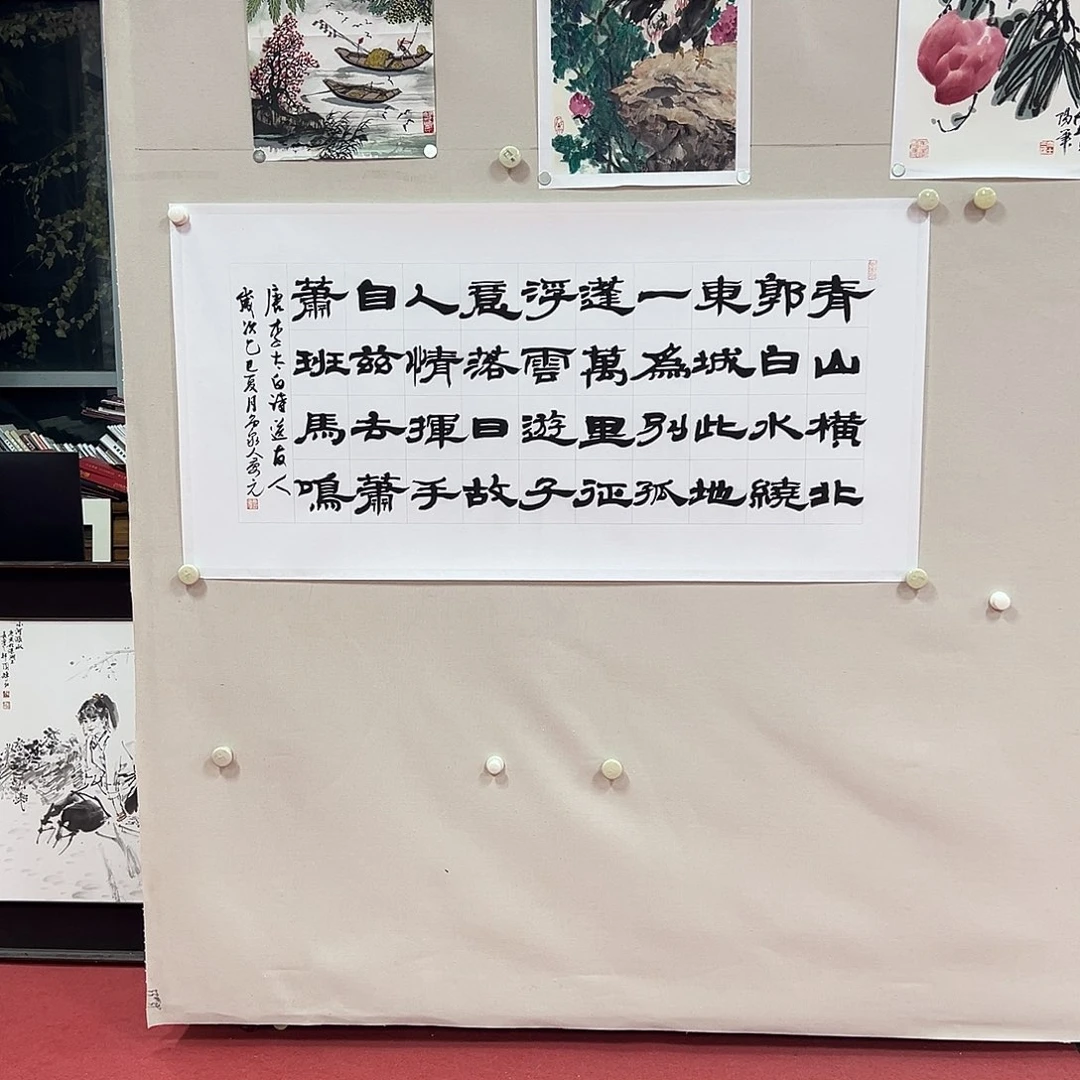 青山橫北
郭白水繞
東城此地
一為別孤
蓬萬里征
浮雲遊子
意落日故
人情揮手
自茲去蕭
蕭班馬鳴
唐李太白詩送友人
歲次乙巳夏月